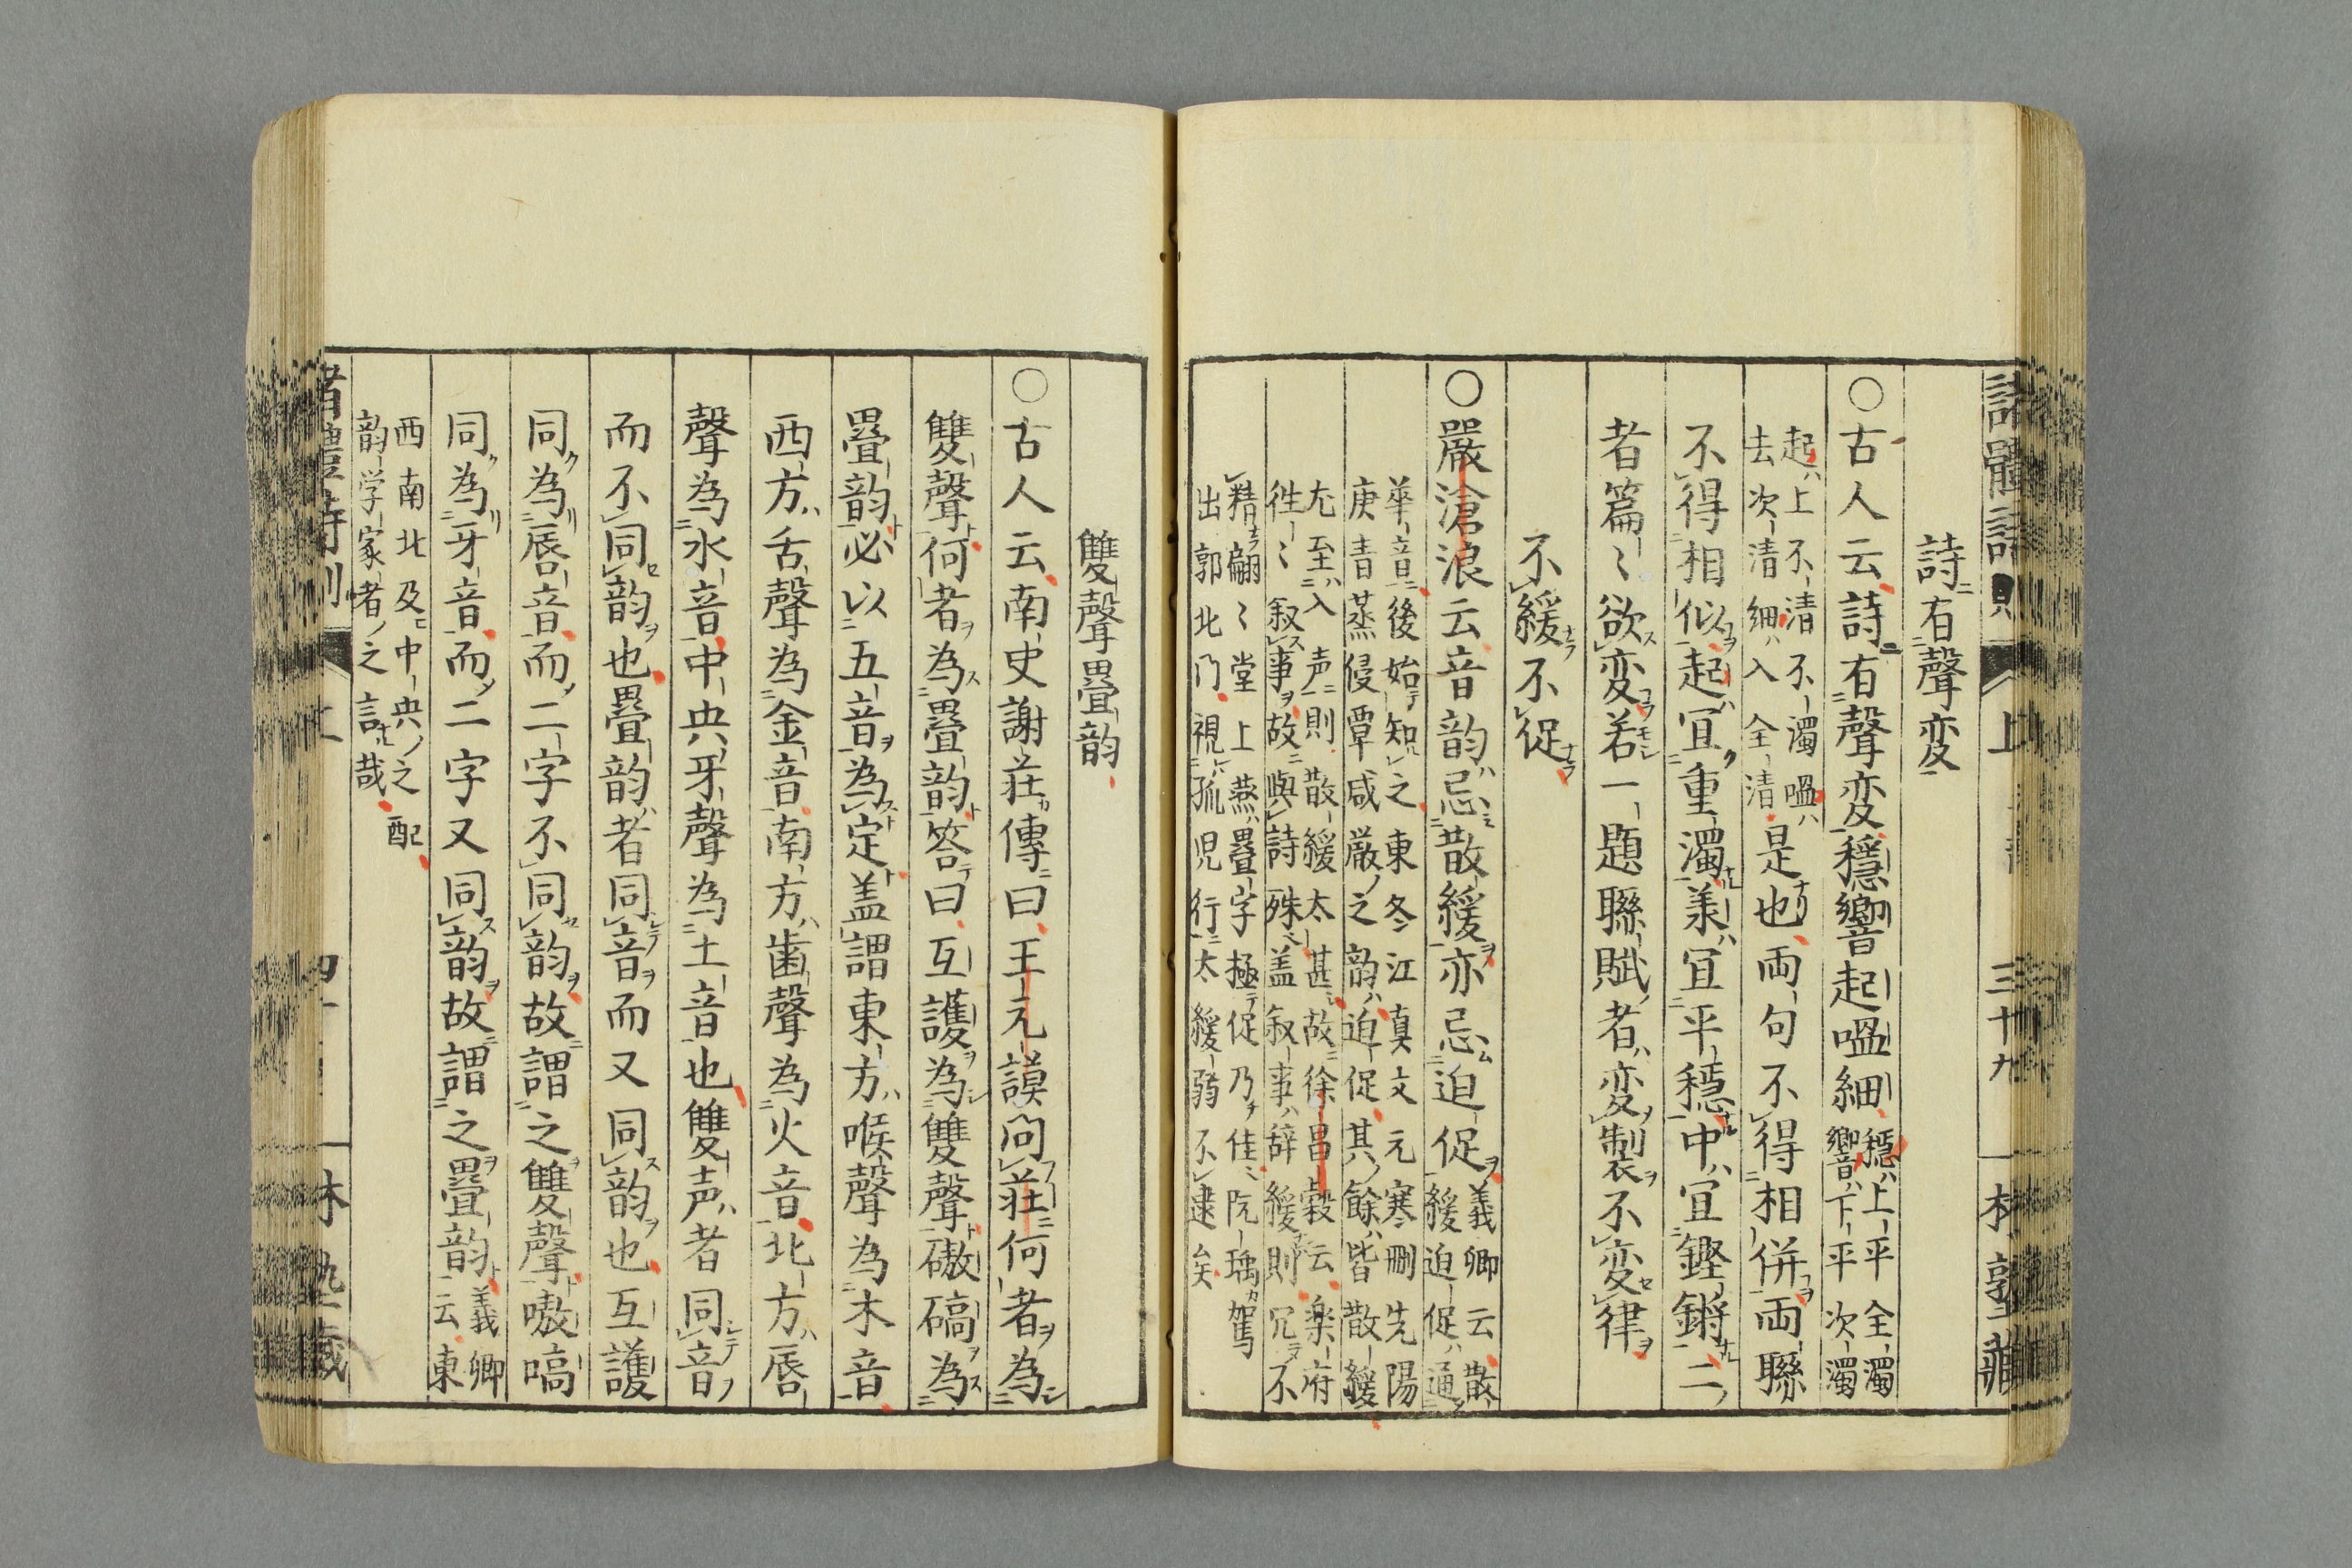 詩有聲変
〇古人云詩有聲変穩響起嗢細穩上平全濁
響下平次濁
起上不清不濁嗢
去次清細入全清是也両句不得相併両聯
不得相似起宜重濁羕宜平穩中宜鏗鏘二
者篇〻欲変若一題聯賦者変製不変律
不緩不促
〇嚴滄浪云音韵忌散緩亦忌迫促義卿云散
緩迫促通
華音後始知之東冬江真文元寒刪先陽
庚青蒸侵覃咸厳之韵迫促其餘皆散緩
尢至入声則散緩太甚故徐昌穀云楽府
徃〻叙事故與詩殊盖叙事辞緩則冗不
精翩〻堂上燕疊字極促乃佳阮瑀駕
出郭北門視孤児行太緩弱不逮矣
詩體詩則 上 三十九 林塾藏
雙聲疊韵
〇古人云南史謝荘傳曰王元謨問荘何者為
雙聲何者為疊韵答曰互護為雙聲磝碻為
疊韵必以五音為定盖謂東方喉聲為木音
西方舌聲為金音南方歯聲為火音北方唇
聲為水音中央牙聲為土音也雙声者同音
而不同韵也疊韵者同音而又同韵也互護
同為唇音而二字不同韵故謂之雙聲嗷嗃
同為牙音而二字又同韵故謂之疊韵義卿
云東
西南北及中央之配
韵学家者之言哉